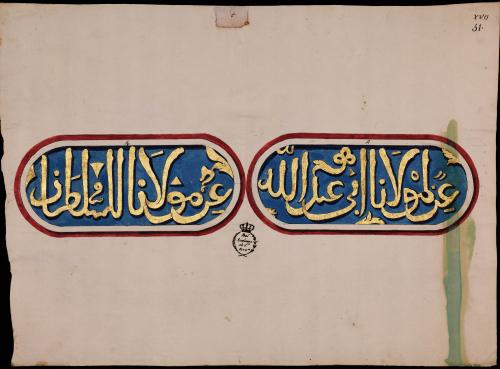 XVII
51.
عز لمولانا ابي عبد الله
عز لمولانا السلطان